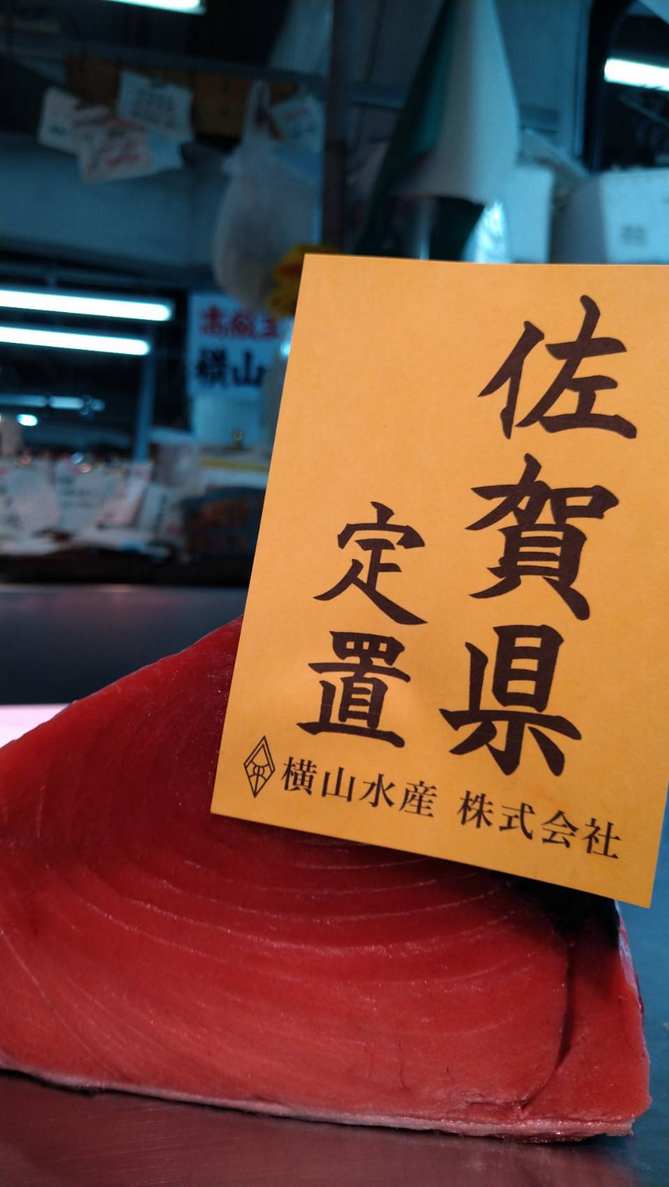 佐賀県
定置
横山水産 株式会社
横山